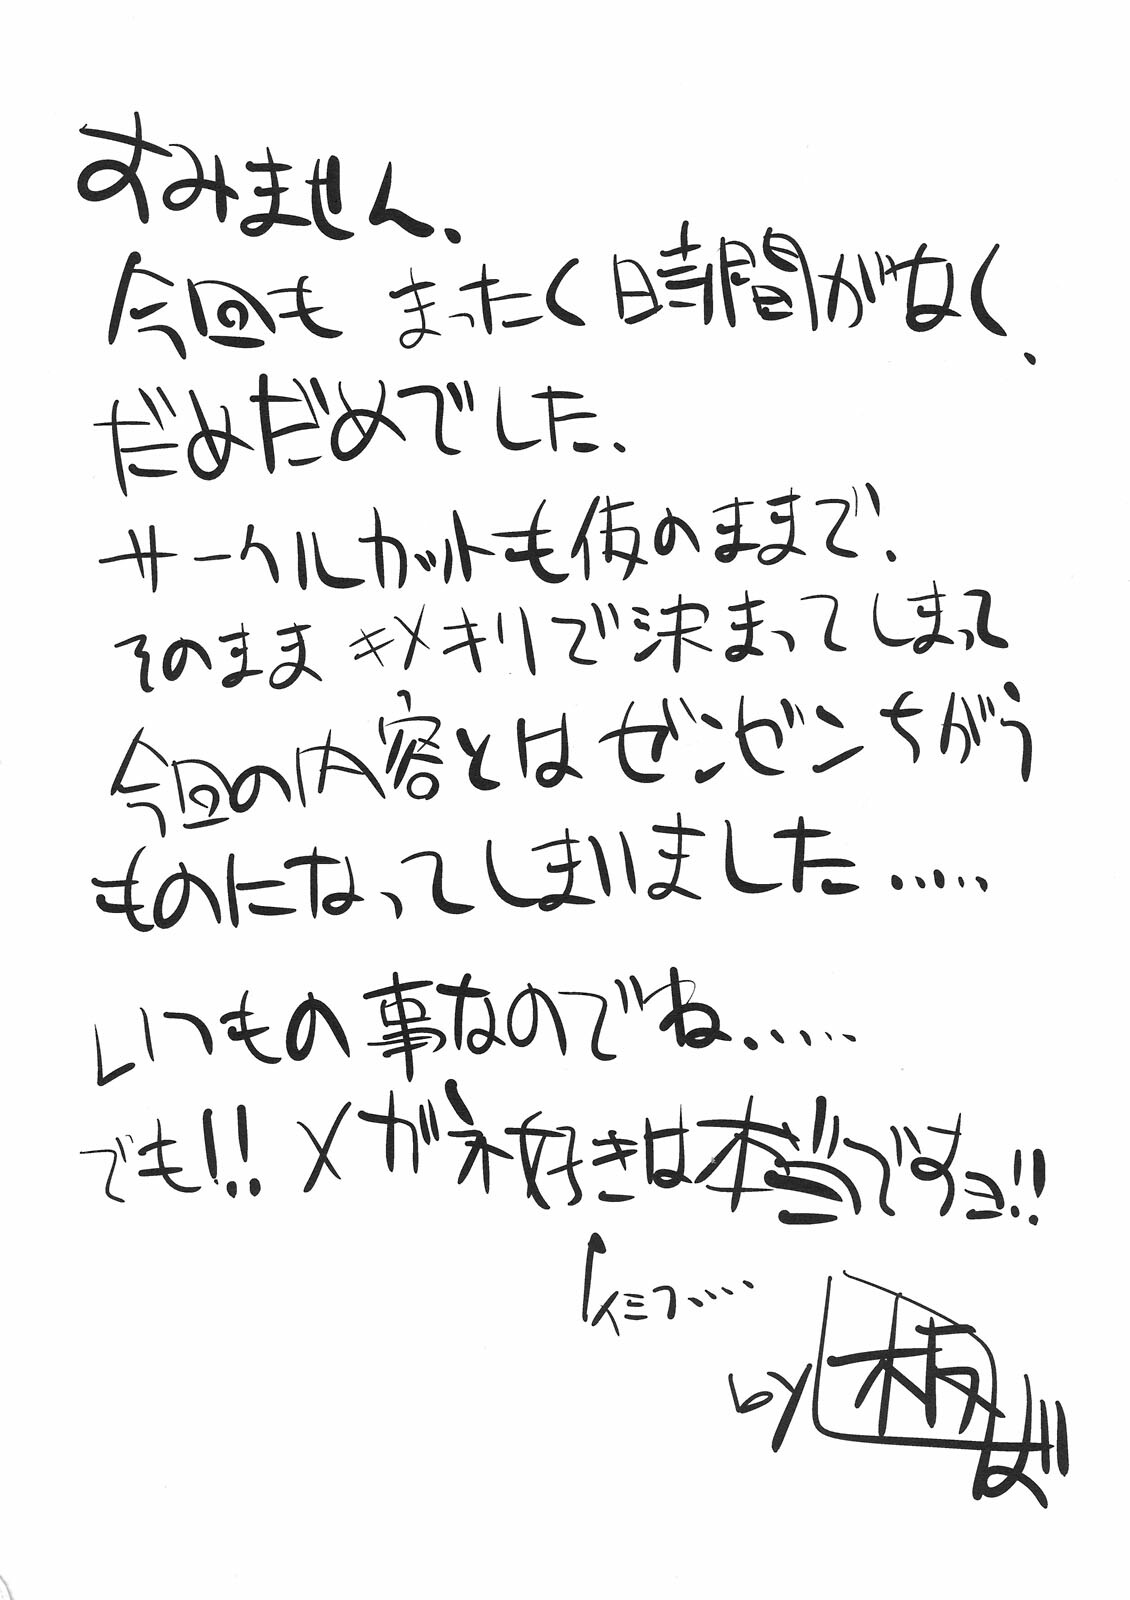 すみません、
今回も まったく時間がなく、
だめだめでした、
サークルカットも仮のままで、
そのまま キメキリで決まってしまって
今回の内容とはゼンゼンちがう
ものになってしまいました.....
いつもの事なのでね.....
でも!! メガネ好きは本当ですョ!!
by 板ば